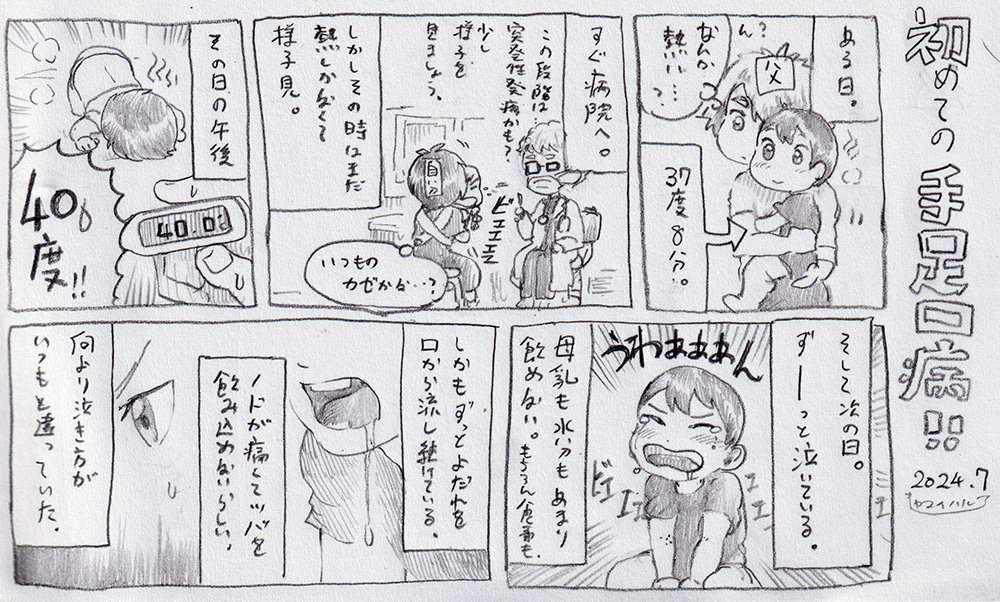 初めての手足口病!!
2024.7
ある日。
ん?
なんか
熱い…
?
父
37度8分。
すぐ病院へ。
この段階は…
突発性発疹かも?
少し
様子を
見ましょう。
自分
ビエエエ
しかしその時はまだ
熱しかなくて
様子見。
いつもの
カゼかな…?
その日の午後
40.0
40度!!
そして次の日。
ずーーっと泣いている。
うわぁぁぁん
ビエエエ
エエエ
母乳も水分もあまり
飲めない。もちろん食事も。
しかもずっとよだれを
口から流し続けている。
ノドが痛くてツバを
飲み込めないらしい。
何より泣き方が
いつもと違っていた。